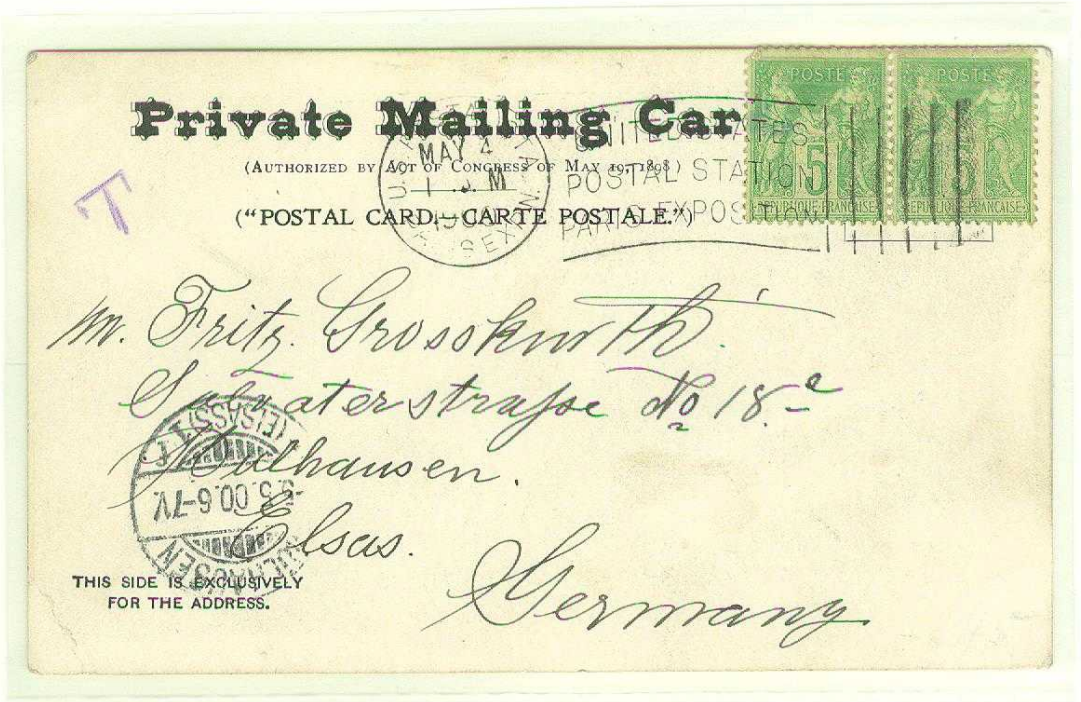 Private Mailing Car
(AUTHORIZED BY ACT OF CONGRESS OF MAY 19, 1898)
("POSTAL CARD,—CARTE POSTALE.")
T
MAY 4
1 M
UNITED STATES
POSTAL STATION
PARIS EXPOSITION
POSTE POSTE
5
REPUBLIQUE FRANCAISE REPUBLIQUE FRANCAISE
M. Fritz. Grosskurth.
strasse No 18 e
Mülhausen.
Elsas.
Germany.
MÜLHAUSEN
(ELSASS) 1
9.5.00.6-7V.
THIS SIDE IS EXCLUSIVELY
FOR THE ADDRESS.